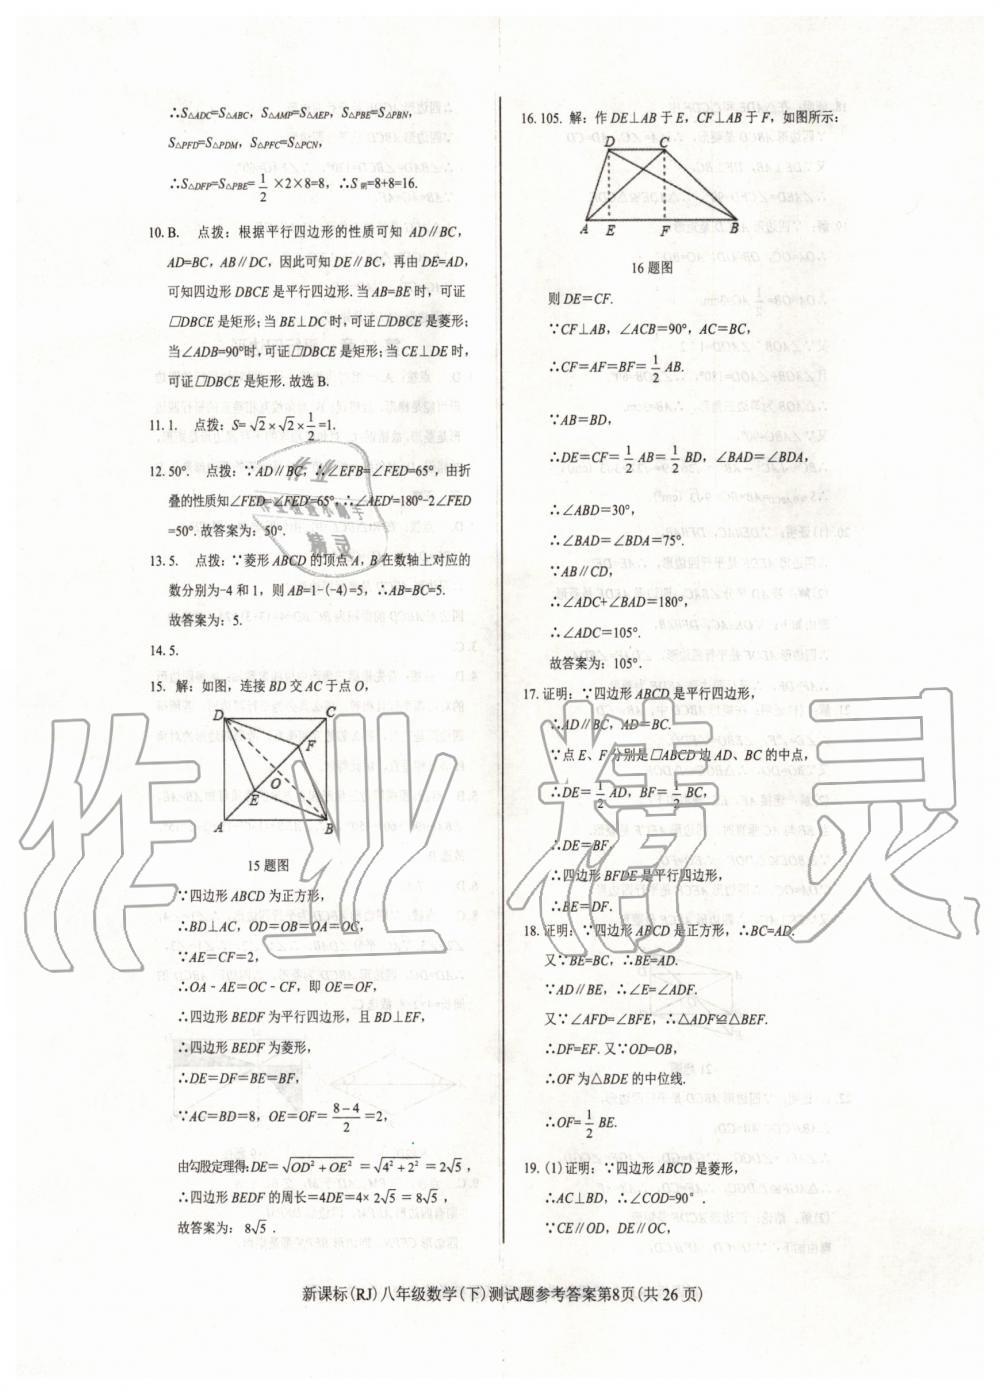 ∴S△ADC=S△ABC，S△AMP=S△AEP，S△PBE=S△PBN，
S△PFD=S△PDM，S△PFC=S△PCN，
∴S△DFP=S△PBE=1/2×2×8=8，∴S阴=8+8=16.
10. B. 点拨：根据平行四边形的性质可知 AD∥BC，
AD=BC，AB∥DC，因此可知 DE∥BC，再由 DE=AD，
可知四边形 DBCE 是平行四边形. 当 AB=BE 时，可证
□DBCE 是矩形；当 BE⊥DC 时，可证□DBCE 是菱形；
当∠ADB=90°时，可证□DBCE 是矩形；当 CE⊥DE 时，
可证□DBCE 是矩形. 故选 B.
11. 1. 点拨：S=√2×√2×1/2=1.
12. 50°. 点拨：∵AD∥BC，∴∠EFB=∠FED=65°，由折
叠的性质知∠FED=∠FED′=65°，∴∠AED′=180°-2∠FED
=50°. 故答案为：50°.
13. 5. 点拨：∵菱形 ABCD 的顶点 A，B 在数轴上对应的
数分别为-4 和 1，则 AB=1-(-4)=5，∴AB=BC=5.
故答案为：5.
14. 5.
15. 解：如图，连接 BD 交 AC 于点 O，
D C
F
O
E
A B
15 题图
∵四边形 ABCD 为正方形，
∴BD⊥AC，OD=OB=OA=OC，
∵AE=CF=2，
∴OA﹣AE=OC﹣CF，即 OE=OF，
∴四边形 BEDF 为平行四边形，且 BD⊥EF，
∴四边形 BEDF 为菱形，
∴DE=DF=BE=BF，
∵AC=BD=8，OE=OF=(8-4)/2=2，
由勾股定理得：DE=√(OD²+OE²)=√(4²+2²)=2√5，
∴四边形 BEDF 的周长=4DE=4×2√5=8√5，
故答案为：8√5.
16. 105. 解：作 DE⊥AB 于 E，CF⊥AB 于 F，如图所示：
D C
A E F B
16 题图
则 DE=CF.
∵CF⊥AB，∠ACB=90°，AC=BC，
∴CF=AF=BF=1/2 AB.
∵AB=BD，
∴DE=CF=1/2 AB=1/2 BD，∠BAD=∠BDA，
∴∠ABD=30°，
∴∠BAD=∠BDA=75°.
∵AB∥CD，
∴∠ADC+∠BAD=180°，
∴∠ADC=105°.
故答案为：105°.
17. 证明：∵四边形 ABCD 是平行四边形，
∴AD∥BC，AD=BC.
∵点 E、F 分别是□ABCD 边 AD、BC 的中点，
∴DE=1/2 AD，BF=1/2 BC，
∴DE=BF，
∴四边形 BFDE 是平行四边形，
∴BE=DF.
18. 证明：∵四边形 ABCD 是正方形，∴BC=AD.
又∵BE=BC，∴BE=AD.
∵AD∥BE，∴∠E=∠ADF.
又∵∠AFD=∠BFE，∴△ADF≌△BEF.
∴DF=EF. 又∵OD=OB，
∴OF 为△BDE 的中位线.
∴OF=1/2 BE.
19. (1) 证明：∵四边形 ABCD 是菱形，
∴AC⊥BD，∴∠COD=90°.
∵CE∥OD，DE∥OC，
新课标(RJ)八年级数学(下)测试题参考答案第8页(共 26 页)
作业精灵